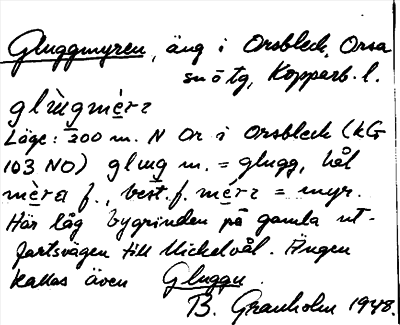 Gluggmyren, äng i Orsbleck, Orsa
sn ö tg, Kopparb. l.
glùgmèrɛ
Läge: 300 m. N Or. i Orsbleck (kG
103 NO) glug m. = glugg, hål
mèra f., best. f. mèrɛ = myr.
Här låg bygrinden på gamla ut-
fartsvägen till Mickelvål. Ängen
kallas även Gluggu.
B. Granholm 1948.